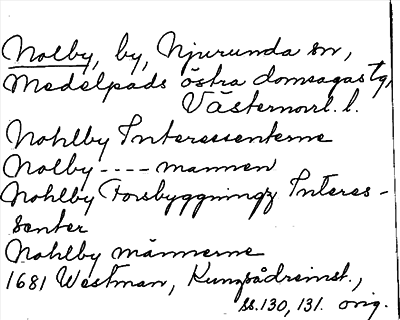 Nolby, by, Njurunda sn,
Medelpads östra domsagas tg,
Västernorrl. l.
Nohlby Interessenterne
Nolby ---- mannen
Nohlby Forsbyggningz Interes-
senter
Nohlby männerne
1681 Westman, Kungsådreinst.,
ss. 130, 131. orig.